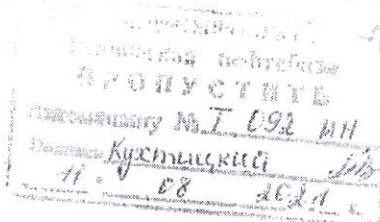 нефтебаза
ПРОПУСТИТЬ
Автомашину № Т 092 МН
Подпись Кухтицкий
"11" 08 2021 г.